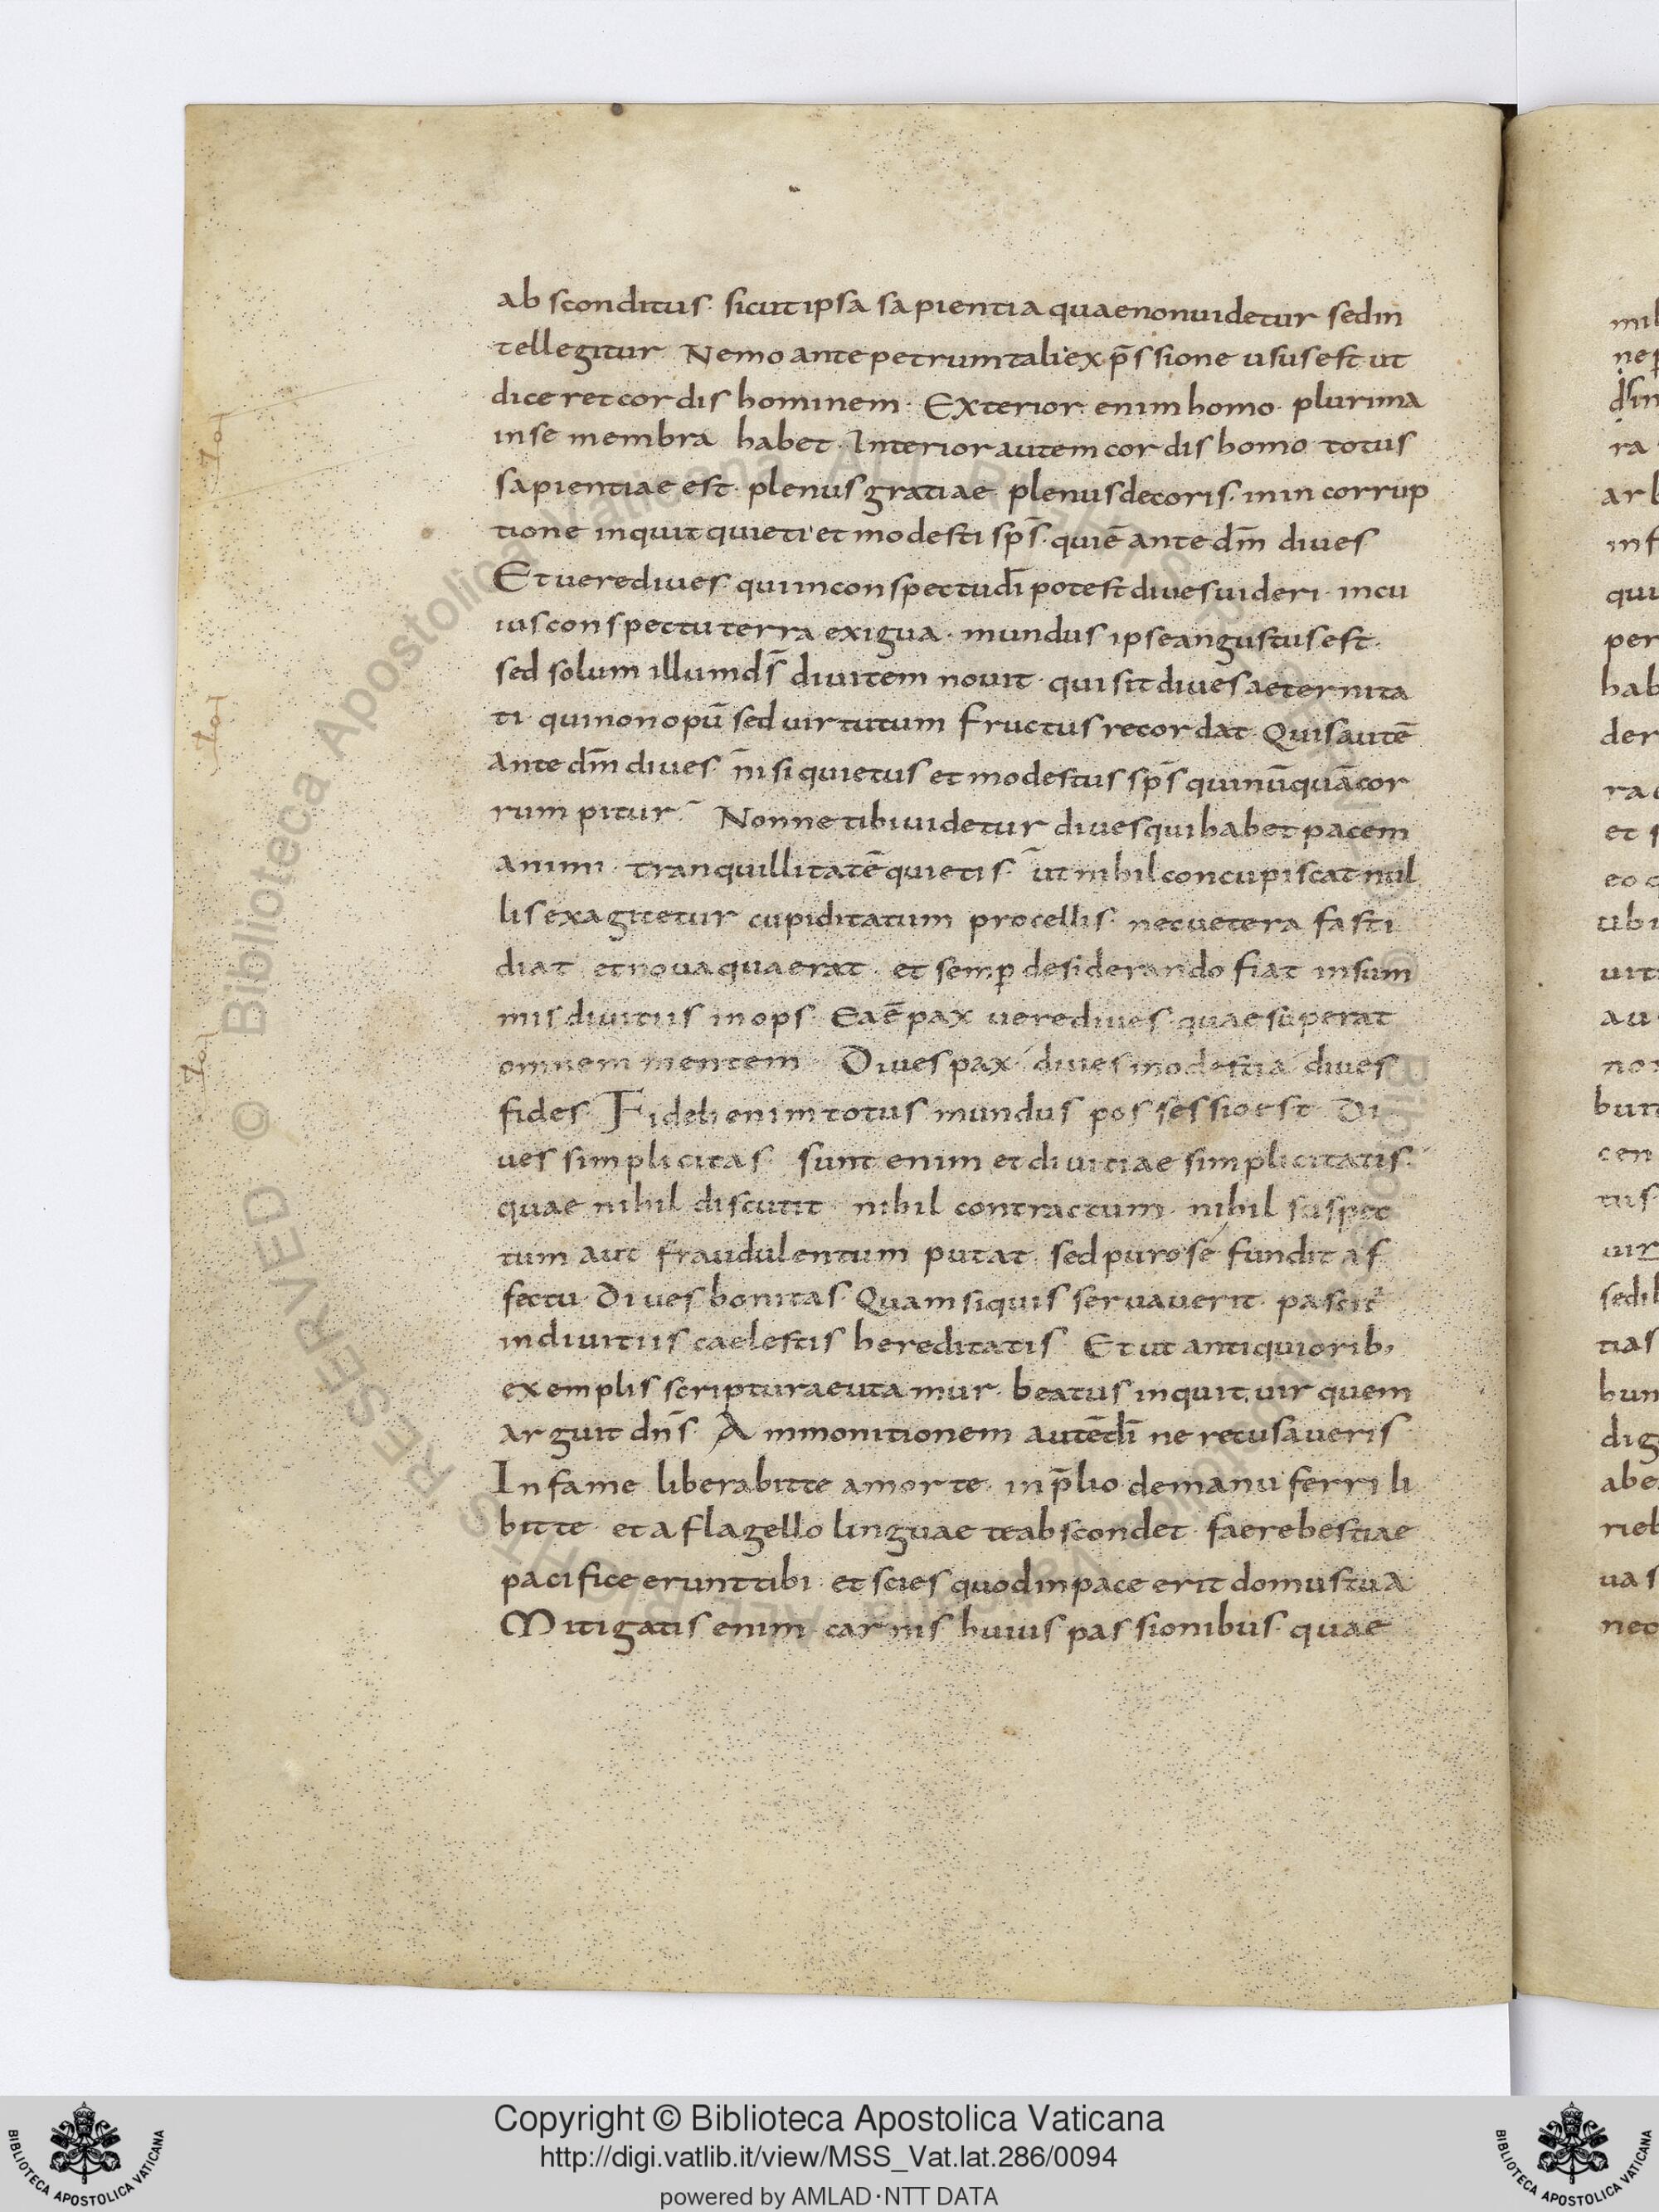 absconditus· sicut ipsa sapientia quae non uidetur sed in
tellegitur· Nemo ante petrum tali exp̄ssione usus est ut
diceret cordis hominem· Exterior enim homo· plurima
in se membra habet· Interior autem cordis homo totus
sapientiae est· plenus gratiae· plenus decoris· in incorrup
tione inquit quieti et modesti sp̄s· qui ē ante dm̄ diues
Et uere diues· qui in conspectu dī potest diues uideri· in cu
ius conspectu terra exigua· mundus ipse angustus est·
sed solum illum ds̄ diuitem nouit· qui sit diues aeternita
ti· qui non opū sed uirtutum fructus recordat· Quis autē
Ante dm̄ diues nisi quietus et modestus sp̄s qui nūquā cor
rumpitur· Nonne tibi uidetur diues qui habet pacem
animi· tranquillitatē quietis· ut nihil concupiscat nul
lis exagitetur cupiditatum procellis· nec uetera fasti
diat et noua quaerat· et semꝑ desiderando fiat in sum
mis diuitiis inops· Ea ē pax uere diues· quae superat
omnem mentem· Diues pax· diues modestia diues
fides· Fideli enim totus mundus possessio est Di
ues simplicitas· sunt enim et diuitiae simplicitatis·
quae nihil discutit· nihil contractum· nihil suspec
tum aut fraudulentum putat· sed puro se fundit af
fectu· Diues bonitas· Quam si quis seruauerit· pascit᷑
in diuitiis caelestis hereditatis· Et ut antiquiorib,
exemplis scripturae utamur· beatus inquit uir quem
arguit dn̄s· Ammonitionem autē dī ne recusaueris·
In fame liberabit te a morte· in p̄lio de manu ferri li
bit te· et a flagello linguae te abscondet· faere bestiae
pacifice erunt tibi· et scies quod in pace erit domus tua·
Mitigatis enim carnis huius passionibus· quae
Copyright © Biblioteca Apostolica Vaticana
http://digi.vatlib.it/view/MSS_Vat.lat.286/0094
powered by AMLAD·NTT DATA